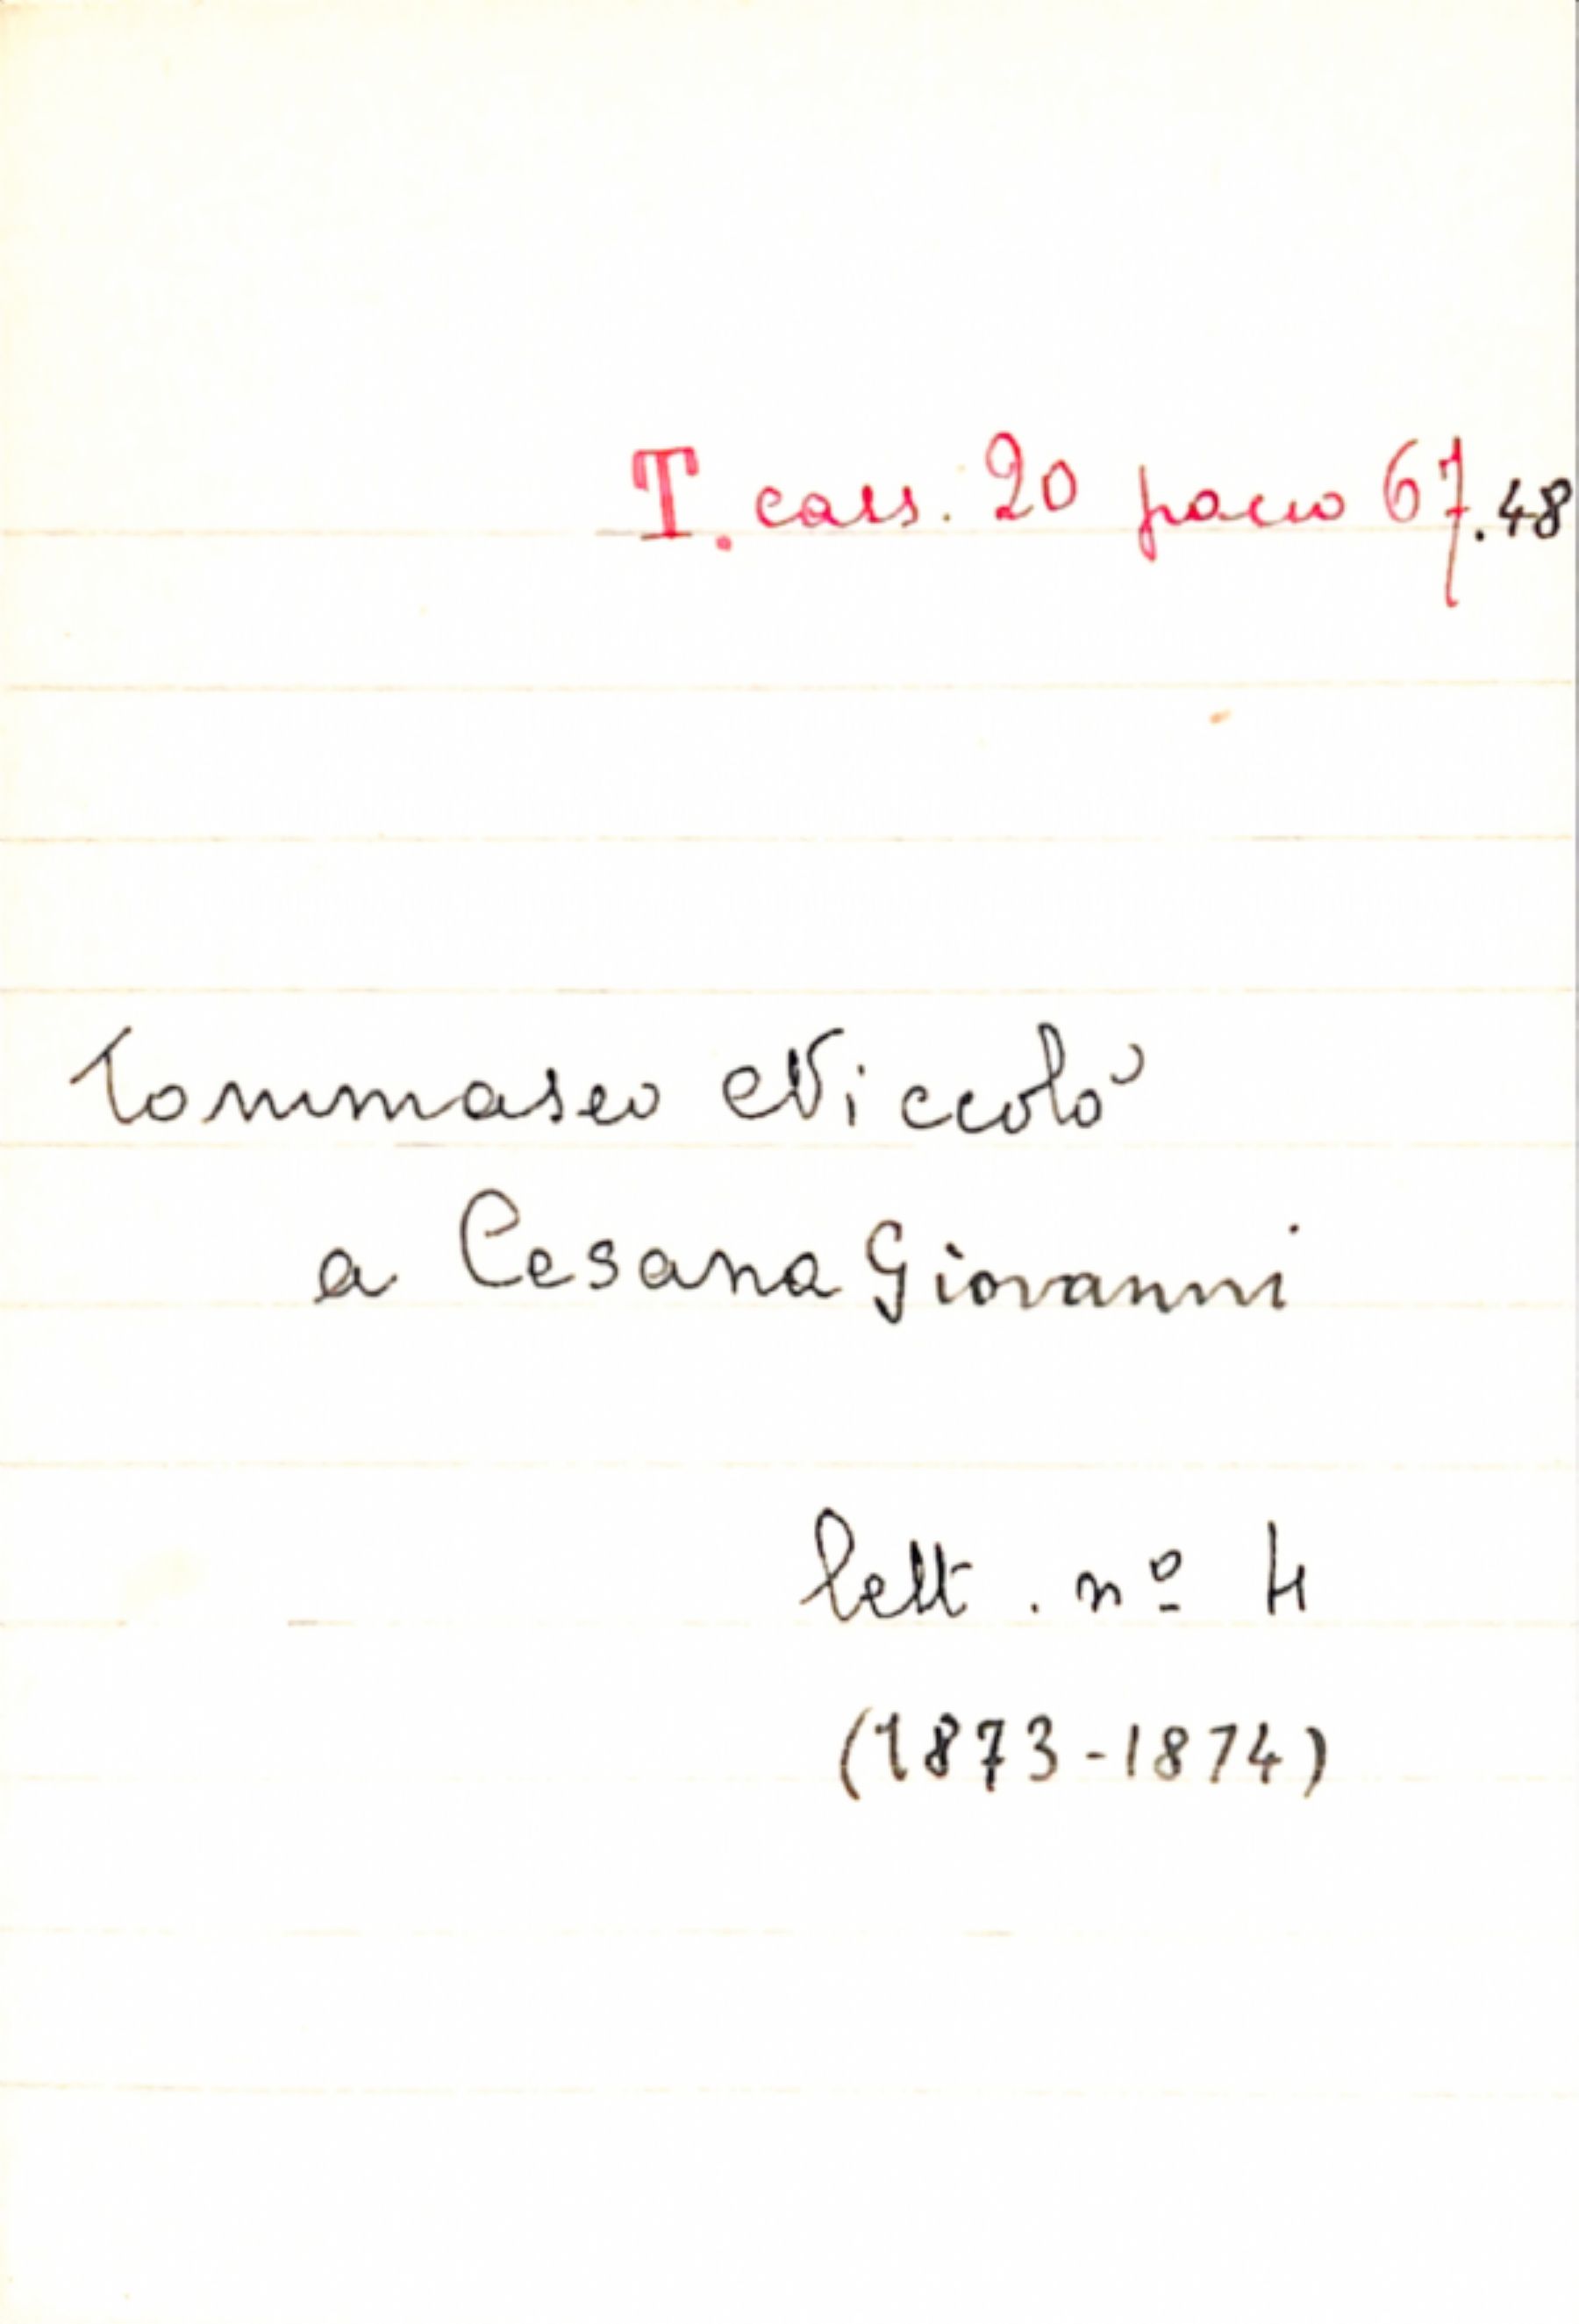 T. cass. 20 pacco 67.48
Tommaseo Niccolò
a Cesana Giovanni
lett. nº 4
(1873-1874)